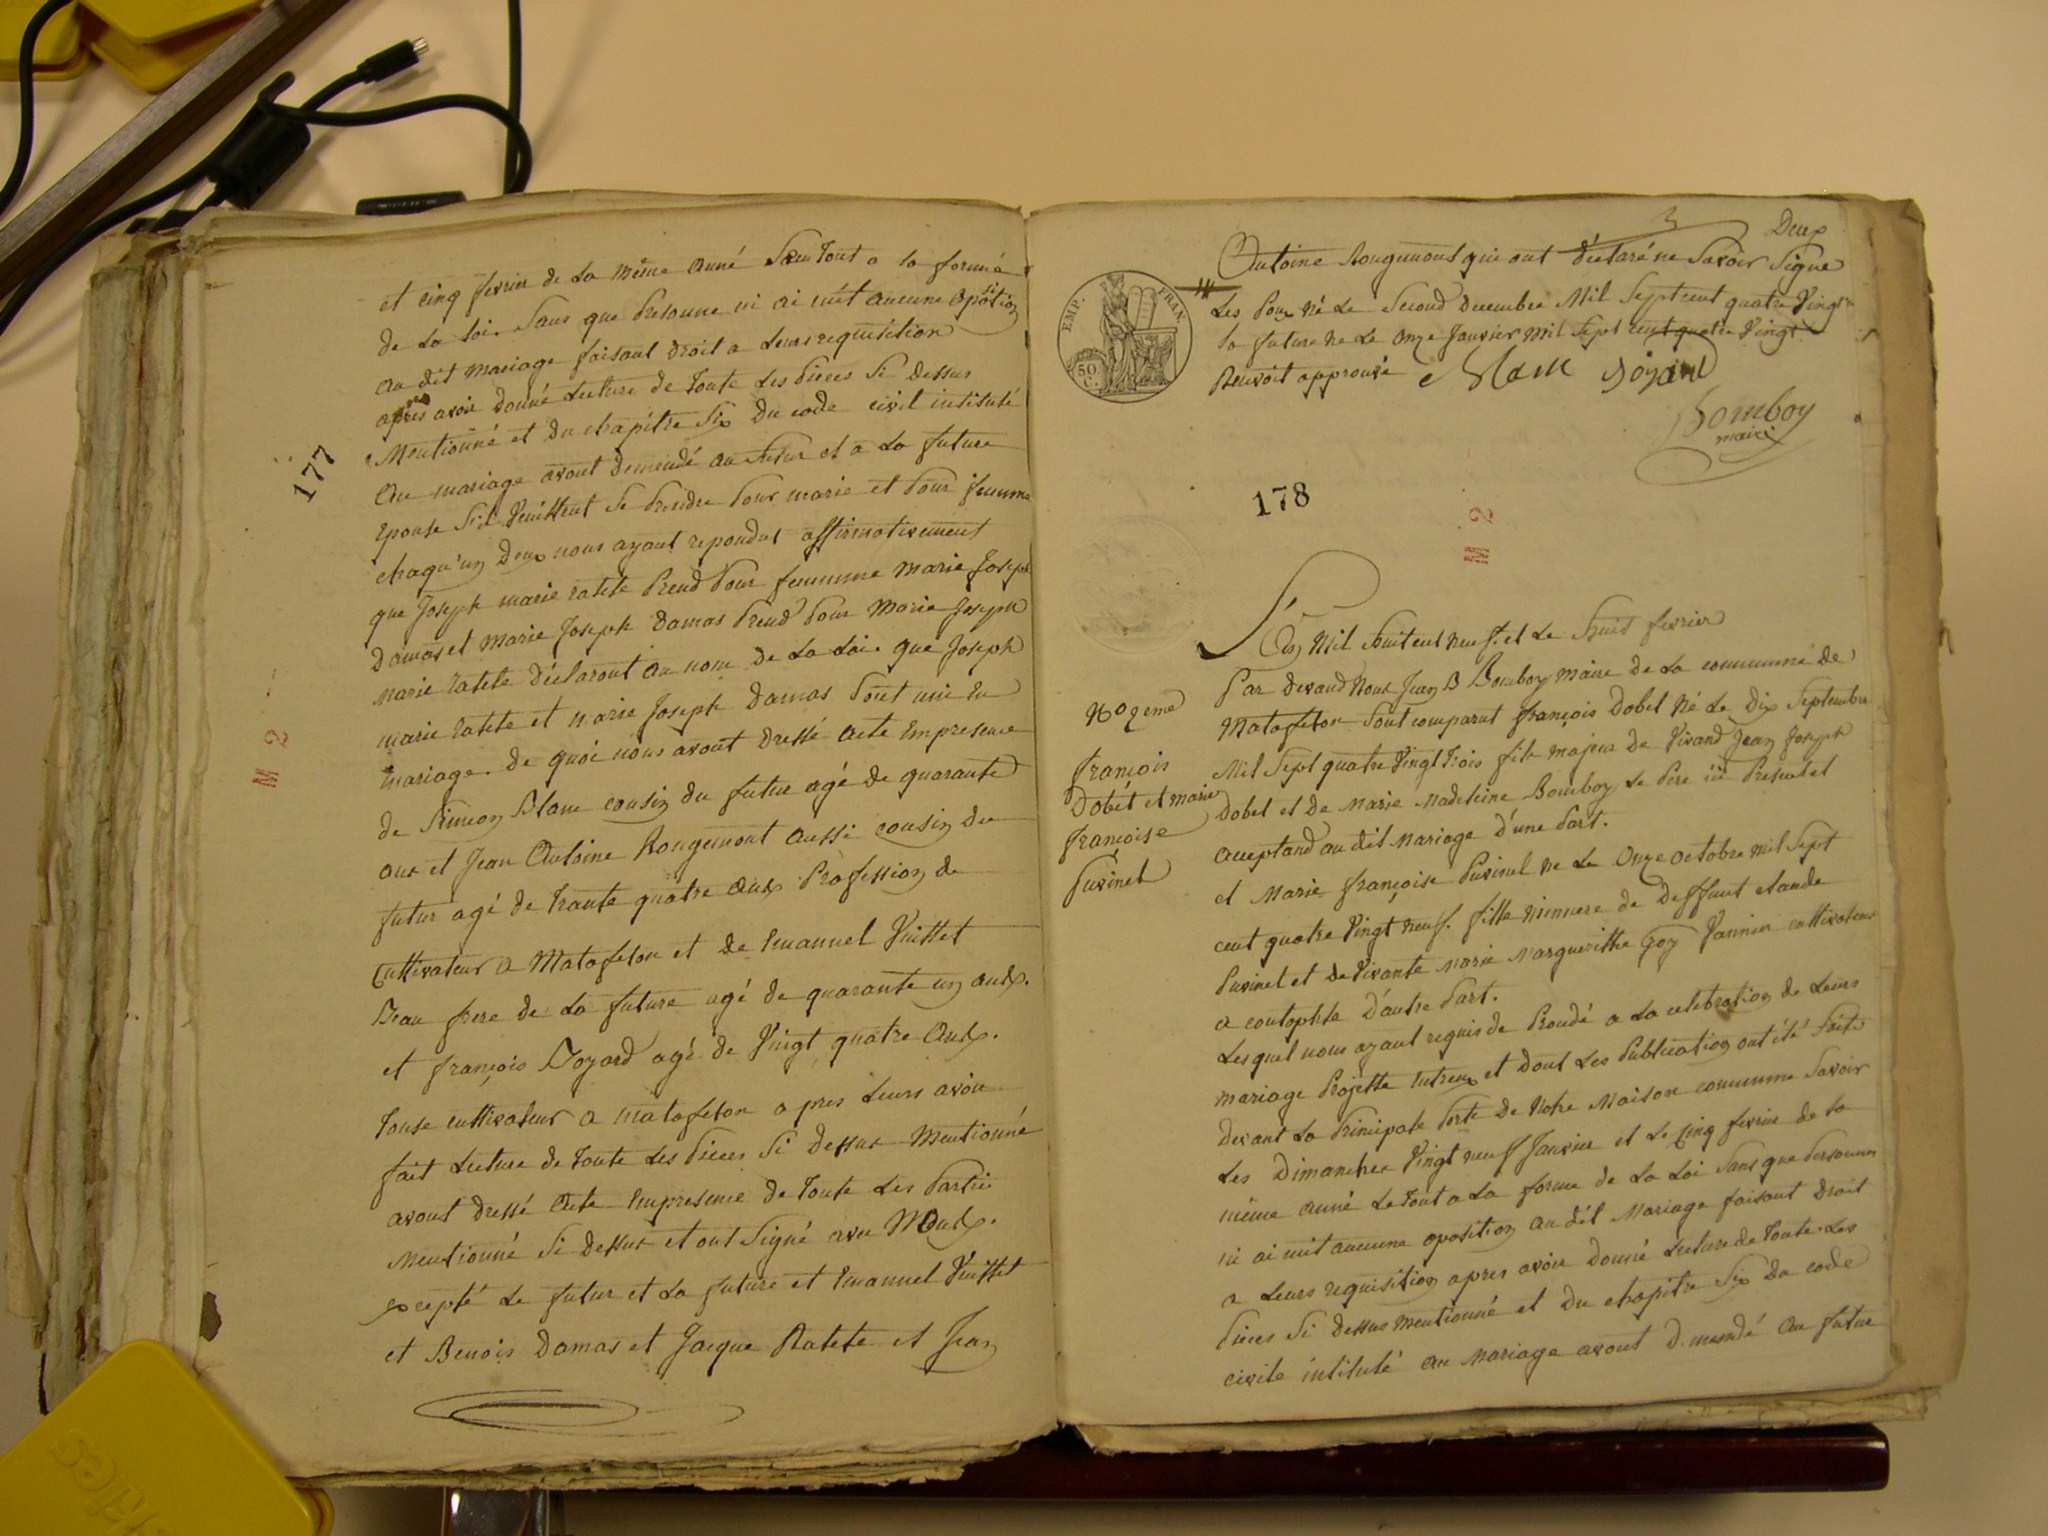 et cinq fevrier de la même anné Le tout a la forme
de la loi. Sans que Presonne ni ai mit aucune oposition
au dit mariage faisant droit a Leurs requisition
apres avoir donné Lecture de toute Les Pieces Si dessus
Mentionné et du chapitre Six du code civil intitulé
du mariage avont demendé au futur et a La future
Epouse Sil Veullent Se Prendre Pour marie et Pour femme
chaqu'un deux nous ayant repondut affirmativement
que Joseph marie ratete Prend Pour femme marie Joseph
Damas et Marie Joseph Damas Prend Pour Marie Joseph
marie ratete déclaront au nom de La Loi. que Joseph
marie ratete et marie Joseph Damas Sont unie En
mariage. de quoi nous avont dressé acte Enpresence
de Simeon Blanc cousin du futur agé de quarante
ans et Jean Antoine Rougemont aussi cousin du
futur agé de trante quatre ans Profession de
Cultivateur a Matafelon et de Emanuel Vuillet
Beau frere de La future agé de quarante un ans.
et françois Joyard agé de Vingt quatre Ans.
tous cultivateur a matafelon a pres Leurs avoir
fait Lecture de toute Les Pieces Si dessus Mentionné
avont dressé Acte Enpresence de toute Les Partie
Mentionné Si dessus et ont Signé avec Nous.
excepté Le futur et La future et Emanuel Vuillet
et Benois Damas et Jacque Ratete et Jean
177
M 2
Deux
Antoine Rougemont qui ont déclaré ne Savoir Signe
Les Poux Né Le Second decembre Mil Sept cent quatre Vingt
la future Ne Le Onze Janvier Mil Sept cent quatre Vingt
Renvoit approuvé Blanc Joyard
Bomboy
maire
EMP. FRAN.
50 C.
178
M 2
L'an Mil huit cent neuf. et Le huit fevrier
Par devand Nous Jean B Bomboy Maire de La commune de
Matafelon Sont comparut françois Dobet Né Le Dix Septembre
Mil Sept quatre Vingt trois fils majeur de Vivand Jean Joseph
Dobet et de Marie Madeleine Bomboy Le Pere ici Present et
acceptand au dit Mariage d'une Part.
et Marie françoise Puvinel Ne Le Onze octobre mil Sept
cent quatre Vingt neuf. fille minneure de deffunt claude
Puvinel et de Vivante Marie Margueritte Goy Vannier cultivateur
a contophle D'autre Part.
Lesquel nous ayant requis de Proudé a La celebration de Leurs
Mariage Projette Entreux et dont Les Publication ont été faite
Devant La Principale Porte de Notre Maison commune Savoir
Les Dimanches Vingt neuf Janvier et Le cinq fevrier de la
même anné Le tout a La forme de La Loi Sans que Personne
ni ai mit aucune oposition au dit Mariage faisant droit
a Leurs requisition apres avoir donné Lecture de toute Les
Pieces Si dessus Mentionné et du chapitre Six Du code
civile intitulé du Mariage avont Demendé au futur
No 2 eme
françois
Dobet et marie
françoise
Puvinel